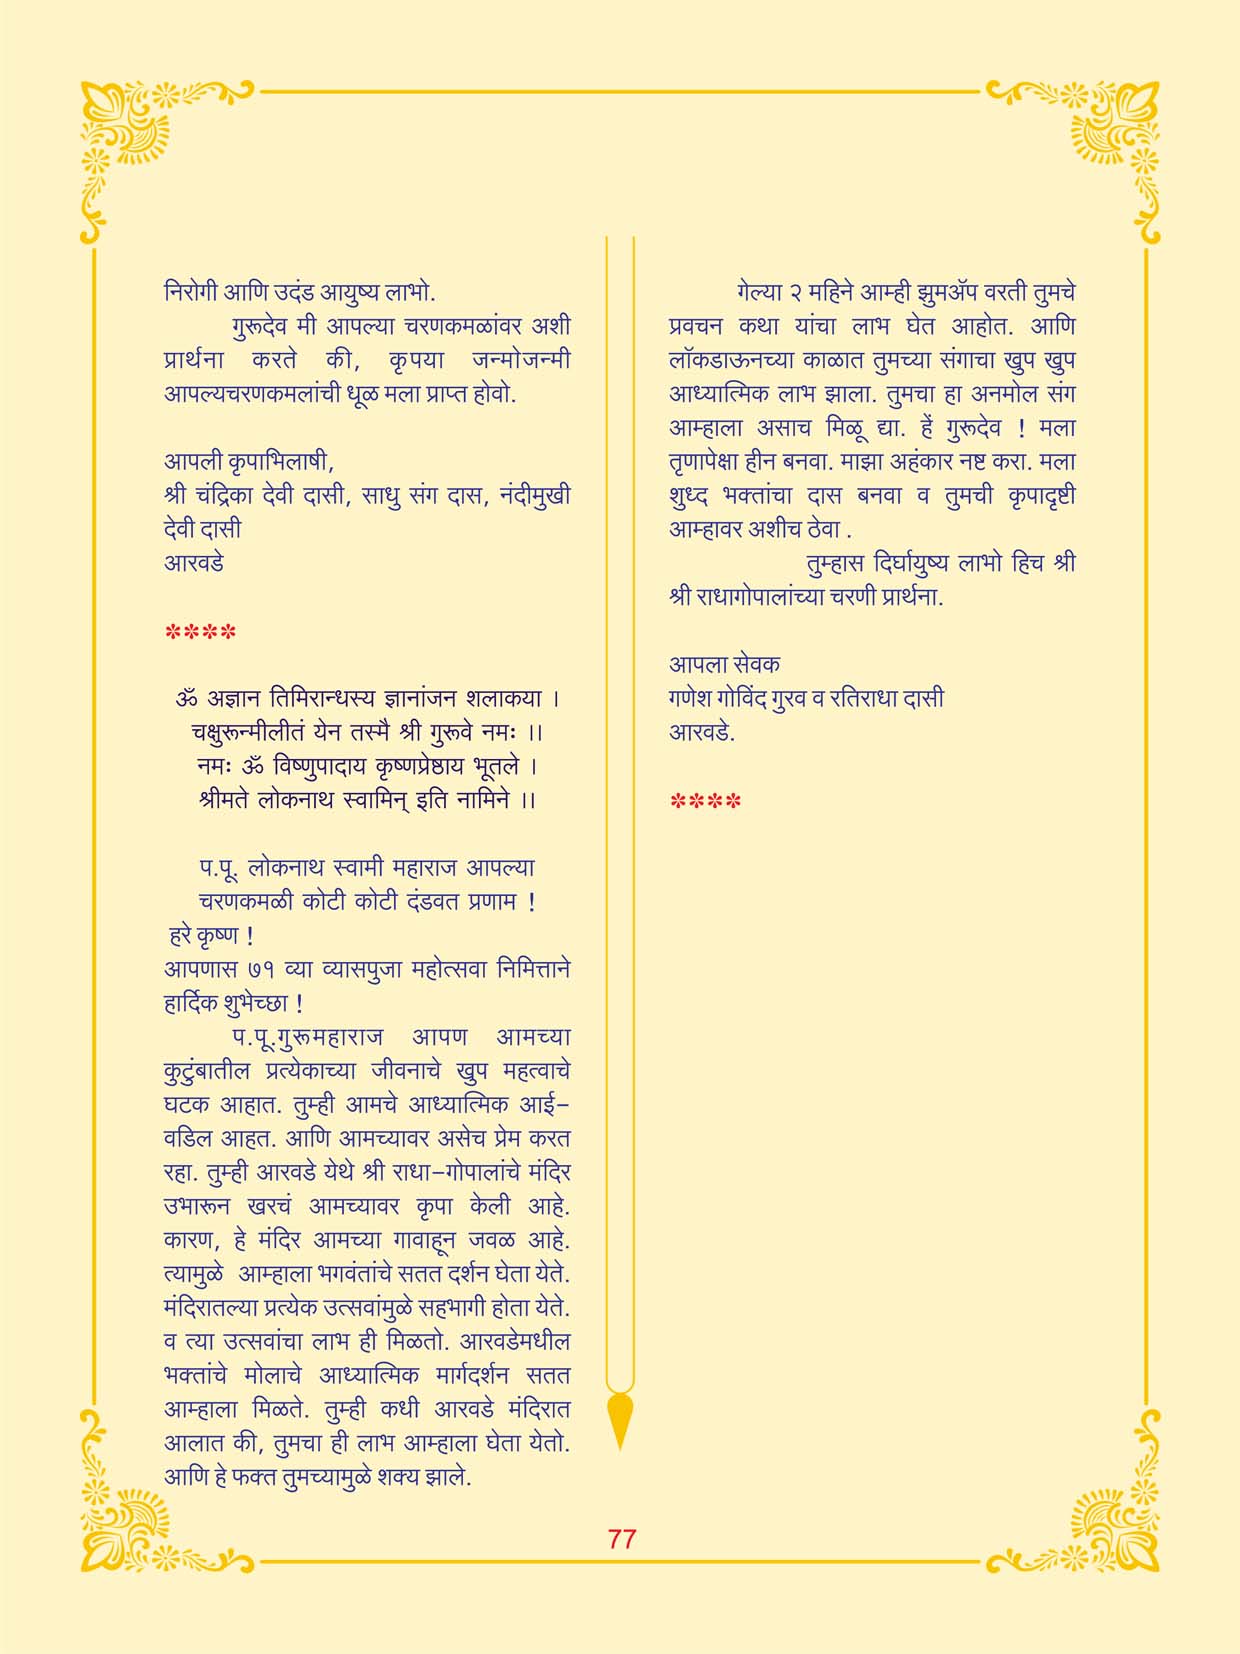 निरोगी आणि उदंड आयुष्य लाभो.
गुरूदेव मी आपल्या चरणकमळांवर अशी
प्रार्थना करते की, कृपया जन्मोजन्मी
आपल्यचरणकमलांची धूळ मला प्राप्त होवो.
आपली कृपाभिलाषी,
श्री चंद्रिका देवी दासी, साधु संग दास, नंदीमुखी
देवी दासी
आरवडे
****
ॐ अज्ञान तिमिरान्धस्य ज्ञानांजन शलाकया ।
चक्षुरून्मीलीतं येन तस्मै श्री गुरूवे नमः ।।
नमः ॐ विष्णुपादाय कृष्णप्रेष्ठाय भूतले ।
श्रीमते लोकनाथ स्वामिन् इति नामिने ।।
प.पू. लोकनाथ स्वामी महाराज आपल्या
चरणकमळी कोटी कोटी दंडवत प्रणाम !
हरे कृष्ण !
आपणास ७१ व्या व्यासपुजा महोत्सवा निमित्ताने
हार्दिक शुभेच्छा !
प.पू.गुरूमहाराज आपण आमच्या
कुटुंबातील प्रत्येकाच्या जीवनाचे खुप महत्वाचे
घटक आहात. तुम्ही आमचे आध्यात्मिक आई-
वडिल आहत. आणि आमच्यावर असेच प्रेम करत
रहा. तुम्ही आरवडे येथे श्री राधा-गोपालांचे मंदिर
उभारून खरचं आमच्यावर कृपा केली आहे.
कारण, हे मंदिर आमच्या गावाहून जवळ आहे.
त्यामुळे आम्हाला भगवंतांचे सतत दर्शन घेता येते.
मंदिरातल्या प्रत्येक उत्सवांमुळे सहभागी होता येते.
व त्या उत्सवांचा लाभ ही मिळतो. आरवडेमधील
भक्तांचे मोलाचे आध्यात्मिक मार्गदर्शन सतत
आम्हाला मिळते. तुम्ही कधी आरवडे मंदिरात
आलात की, तुमचा ही लाभ आम्हाला घेता येतो.
आणि हे फक्त तुमच्यामुळे शक्य झाले.
गेल्या २ महिने आम्ही झुमॲप वरती तुमचे
प्रवचन कथा यांचा लाभ घेत आहोत. आणि
लॉकडाऊनच्या काळात तुमच्या संगाचा खुप खुप
आध्यात्मिक लाभ झाला. तुमचा हा अनमोल संग
आम्हाला असाच मिळू द्या. हें गुरूदेव ! मला
तृणापेक्षा हीन बनवा. माझा अहंकार नष्ट करा. मला
शुध्द भक्तांचा दास बनवा व तुमची कृपादृष्टी
आम्हावर अशीच ठेवा .
तुम्हास दिर्घायुष्य लाभो हिच श्री
श्री राधागोपालांच्या चरणी प्रार्थना.
आपला सेवक
गणेश गोविंद गुरव व रतिराधा दासी
आरवडे.
****
77